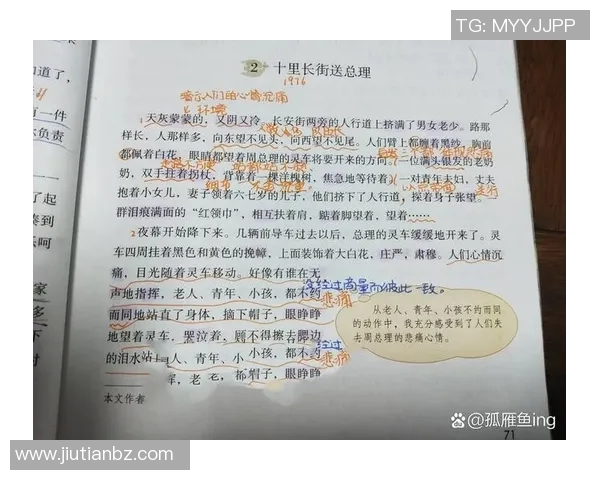 TG: MYYJJPP
2 十里长街送总理
1976
暗示人们的心情沉痛
环境
1天灰蒙蒙的，又阴又冷。长安街两旁的人行道上挤满了男女老少。路那
样长，人那样多，向东望不见头，向西望不见尾。人们臂上都缠着黑纱，胸前
都佩着白花，眼睛都望着周总理的灵车将要开来的方向。一位满头银发的老奶
奶，双手拄着拐杖，背靠着一棵洋槐树，焦急地等待着。一对青年夫妇，丈夫
抱着小女儿，妻子领着六七岁的儿子，他们挤下了人行道，探着身子张望。
群泪痕满面的“红领巾”，相互扶着肩，踮着脚望着，望着……
2夜幕开始降下来。几辆前导车过去以后，总理的灵车缓缓地开来了。灵
车四周挂着黑色和黄色的挽幛，上面装饰着大白花，庄严，肃穆。人们心情沉
痛，目光随着灵车移动。好像有谁在无
没经过商量而彼此一致。
声地指挥，老人、青年、小孩，都不约
悲痛
而同地站直了身体，摘下帽子，眼睁睁
地望着灵车，哭泣着，顾不得擦去腮边
的泪水
人、青年、小孩，都不约
经过
悲痛
挥，老
帽子，眼睁睁
从老人、青年、小孩不约而同
的动作中，我充分感受到了人们失
去周总理的悲痛心情。
本文作者
71
道了，
有一件
负责
了起
家
多
下
@孤雁鱼ing
www.jiutianbz.com